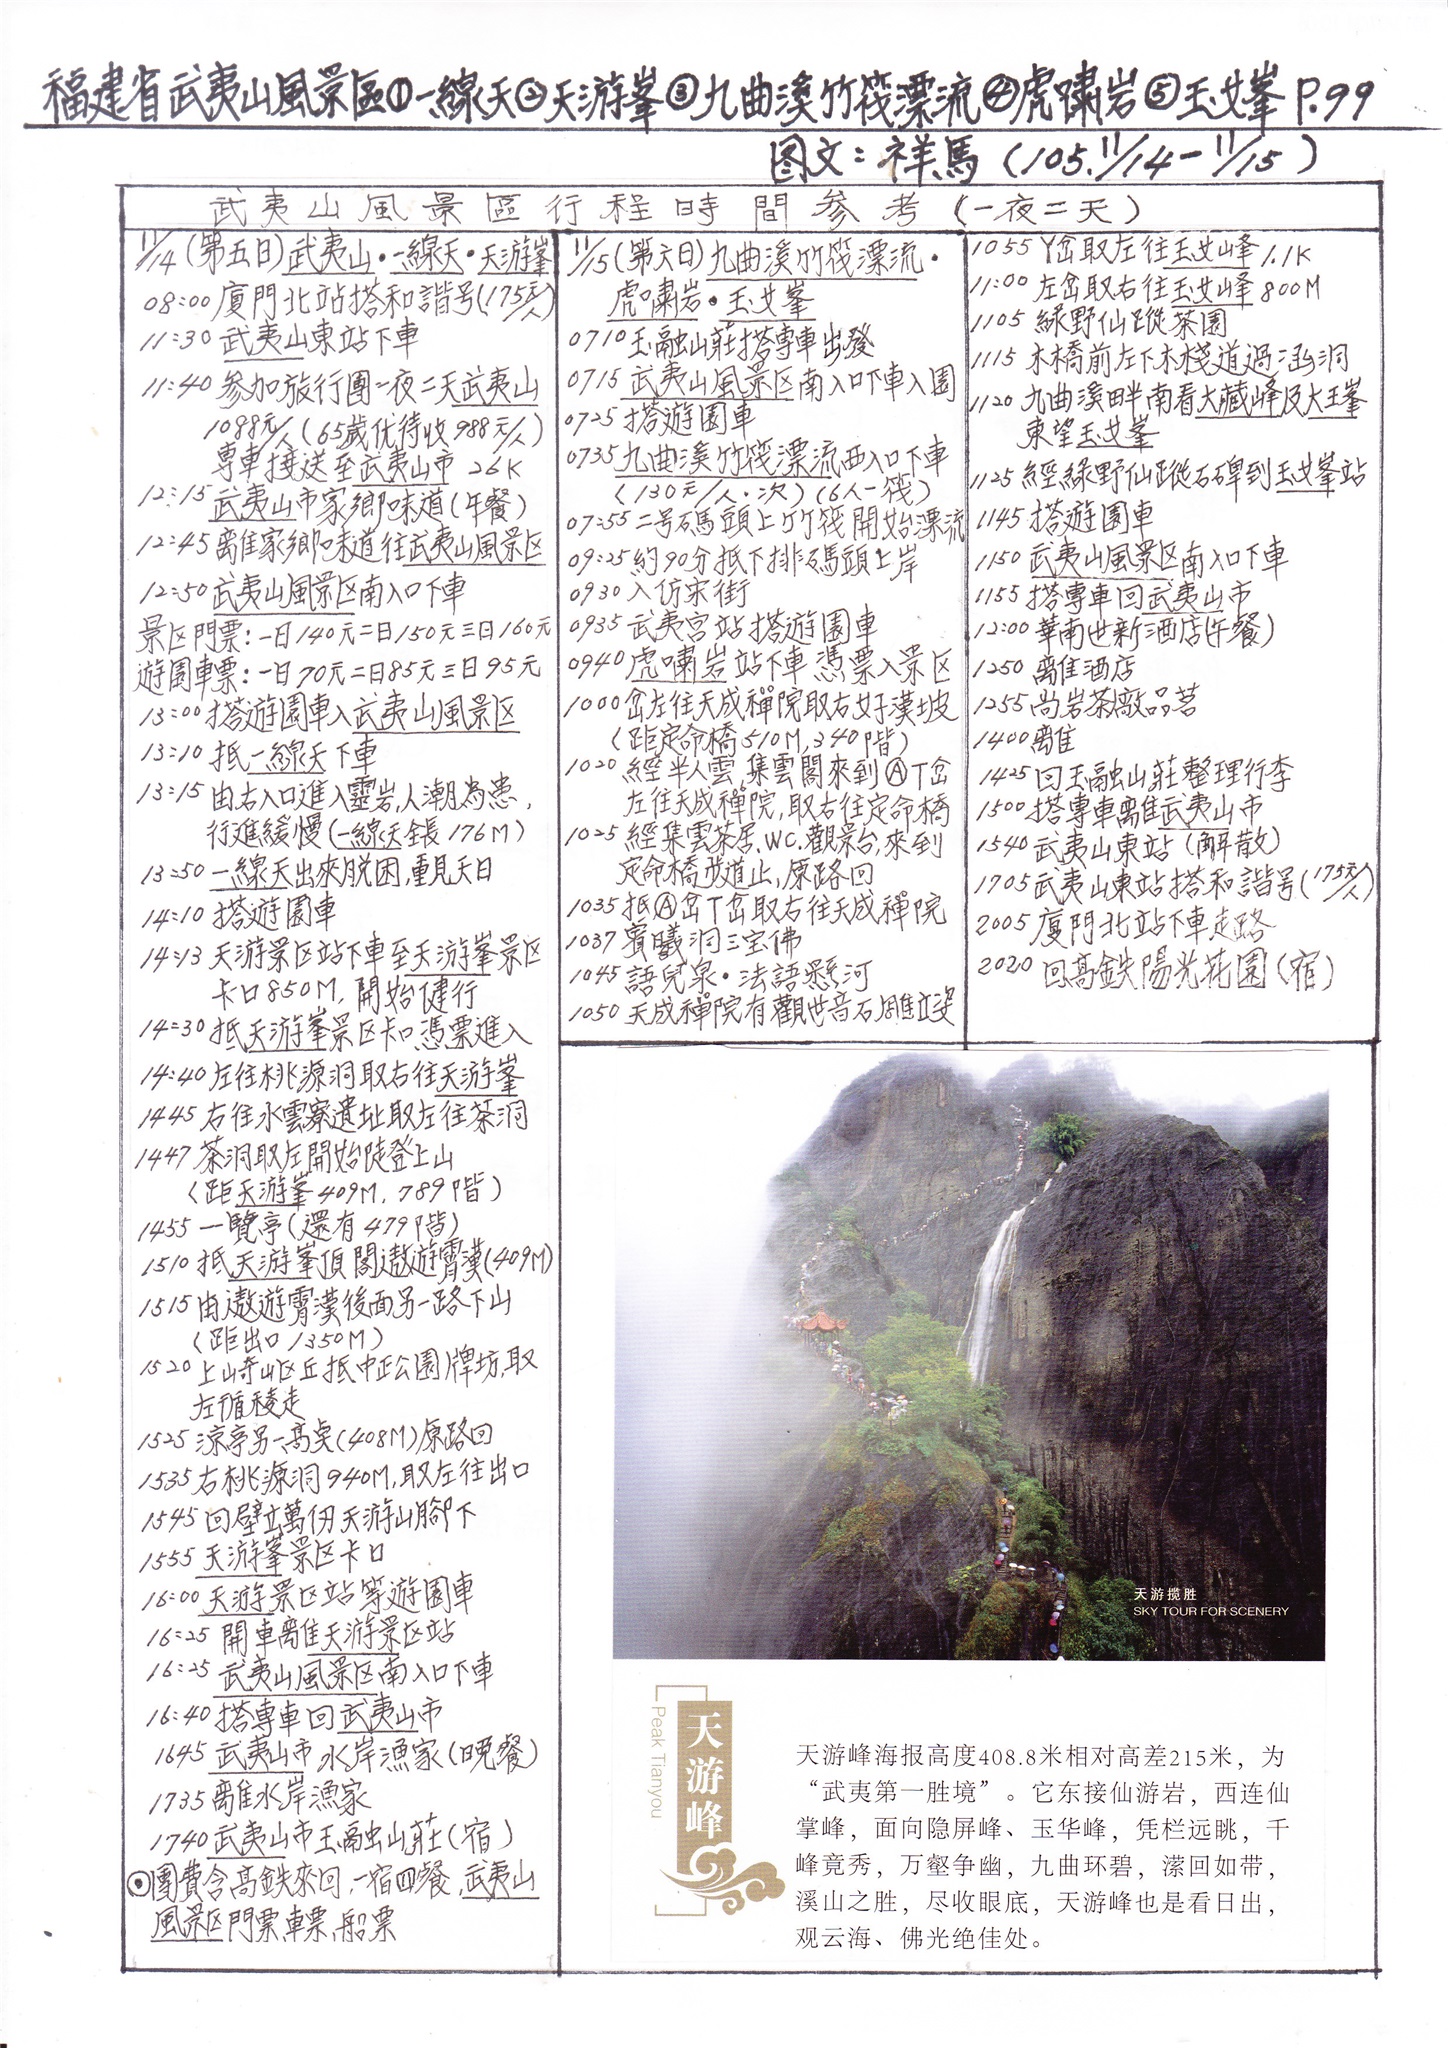 福建省武夷山風景區①一線天②天游峯③九曲溪竹筏漂流④虎嘯岩⑤玉女峯 P.99
图文：祥馬（105.11/14－11/15）
武夷山風景區行程時間參考（一夜二天）
11/14（第五日）武夷山・一線天・天游峯
08:00 廈門北站搭和諧号（175元/人）
11:30 武夷山東站下車
11:40 參加旅行團一夜二天武夷山
1088元/人（65歲优待收988元/人）
專車接送至武夷山市 26K
12:15 武夷山市家鄉味道（午餐）
12:45 離隹家鄉味道往武夷山風景区
12:50 武夷山風景区南入口下車
景区門票：一日140元二日150元三日160元
遊園車票：一日70元二日85元三日95元
13:00 搭遊園車入武夷山風景区
13:10 抵一線天下車
13:15 由右入口進入靈岩，人潮為患，
行進緩慢（一線天全長176M）
13:50 一線天出來脱困，重見天日
14:10 搭遊園車
14:13 天游景区站下車至天游峯景区
卡口850M，開始健行
14:30 抵天游峯景区卡口憑票進入
14:40 左往桃源洞取右往天游峯
1445 右往水雲寮遺址取左往茶洞
1447 茶洞取左開始陡登上山
（距天游峯409M，789階）
1455 一覽亭（還有479階）
1510 抵天游峯頂閣遨遊霄漢（409M）
1515 由遨遊霄漢後面另一路下山
（距出口1350M）
1520 上崎岖丘抵中正公園牌坊，取
左循稜走
1525 涼亭另一高奌（408M）原路回
1535 右桃源洞940M，取左往出口
1545 回壁立萬仞天游山腳下
1555 天游峯景区卡口
16:00 天游景区站等遊園車
16:25 開車離隹天游景区站
16:25 武夷山風景区南入口下車
16:40 搭專車回武夷山市
1645 武夷山市水岸漁家（晚餐）
1735 離水岸漁家
1740 武夷山市玉融山莊（宿）
⊙團費含高鉄來回，一宿四餐，武夷山
風景区門票，車票，船票
11/15（第六日）九曲溪竹筏漂流・
虎嘯岩・玉女峯
0710 玉融山莊搭專車出發
0715 武夷山風景区南入口下車入園
0725 搭遊園車
0735 九曲溪竹筏漂流西入口下車
（130元/人・次）（6人一筏）
07:55 二号碼頭上竹筏開始漂流
09:25 約90分抵下排碼頭上岸
0930 入仿宋街
0935 武夷宮站搭遊園車
0940 虎嘯岩站下車憑票入景区
1000 岔左往天成禪院取右好漢坡
（距定命橋510M，340階）
1020 經半人雲，集雲閣來到Ⓐ丁岔
左往天成禪院，取右往定命橋
1025 經集雲茶居，WC，觀景台，來到
定命橋步道止，原路回
1035 抵Ⓐ岔丁岔取右往天成禪院
1037 賓曦洞三宝佛
1045 語兒泉・法語懸河
1050 天成禪院有觀世音石雕立姿
1055 丫岔取左往玉女峰 1.1K
11:00 左岔取右往玉女峰800M
1105 綠野仙蹤茶園
1115 木橋前左下木棧道過涵洞
1120 九曲溪畔南看大藏峰及大王峯
東望玉女峯
1125 經綠野仙蹤石碑到玉女峯站
1145 搭遊園車
1150 武夷山風景区南入口下車
1155 搭專車回武夷山市
12:00 華南世新酒店（午餐）
1250 離酒店
1255 尚岩茶廠品茗
1400 離
1425 回玉融山莊整理行李
1500 搭專車離武夷山市
1540 武夷山東站（解散）
1705 武夷山東站搭和諧号（175元/人）
2005 廈門北站下車走路
2020 回高鉄陽光花園（宿）
天游揽胜
SKY TOUR FOR SCENERY
天游峰
Peak Tianyou
天游峰海报高度408.8米相对高差215米，为
“武夷第一胜境”。它东接仙游岩，西连仙
掌峰，面向隐屏峰、玉华峰，凭栏远眺，千
峰竞秀，万壑争幽，九曲环碧，潆回如带，
溪山之胜，尽收眼底，天游峰也是看日出，
观云海、佛光绝佳处。